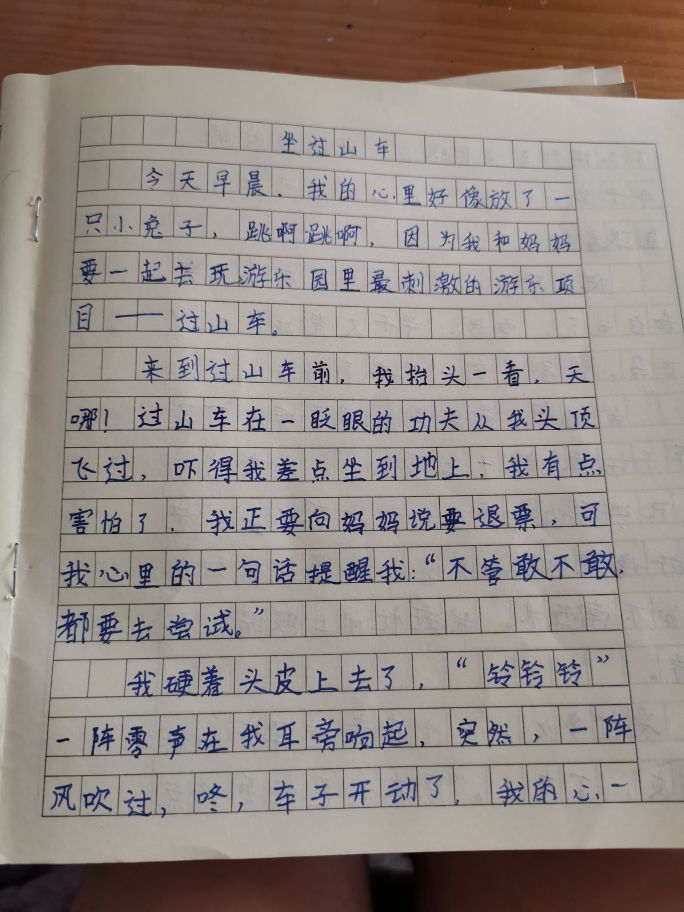 坐过山车
今天早晨，我的心里好像放了一
只小兔子，跳啊跳啊，因为我和妈妈
要一起去玩游乐园里最刺激的游乐项
目——过山车。
来到过山车前，我抬头一看，天
哪！过山车在一眨眼的功夫从我头顶
飞过，吓得我差点坐到地上，我有点
害怕了，我正要向妈妈说要退票，可
我心里的一句话提醒我：“不管敢不敢，
都要去尝试。”
我硬着头皮上去了，“铃铃铃”
一阵零声在我耳旁响起，突然，一阵
风吹过，咚，车子开动了，我的心一